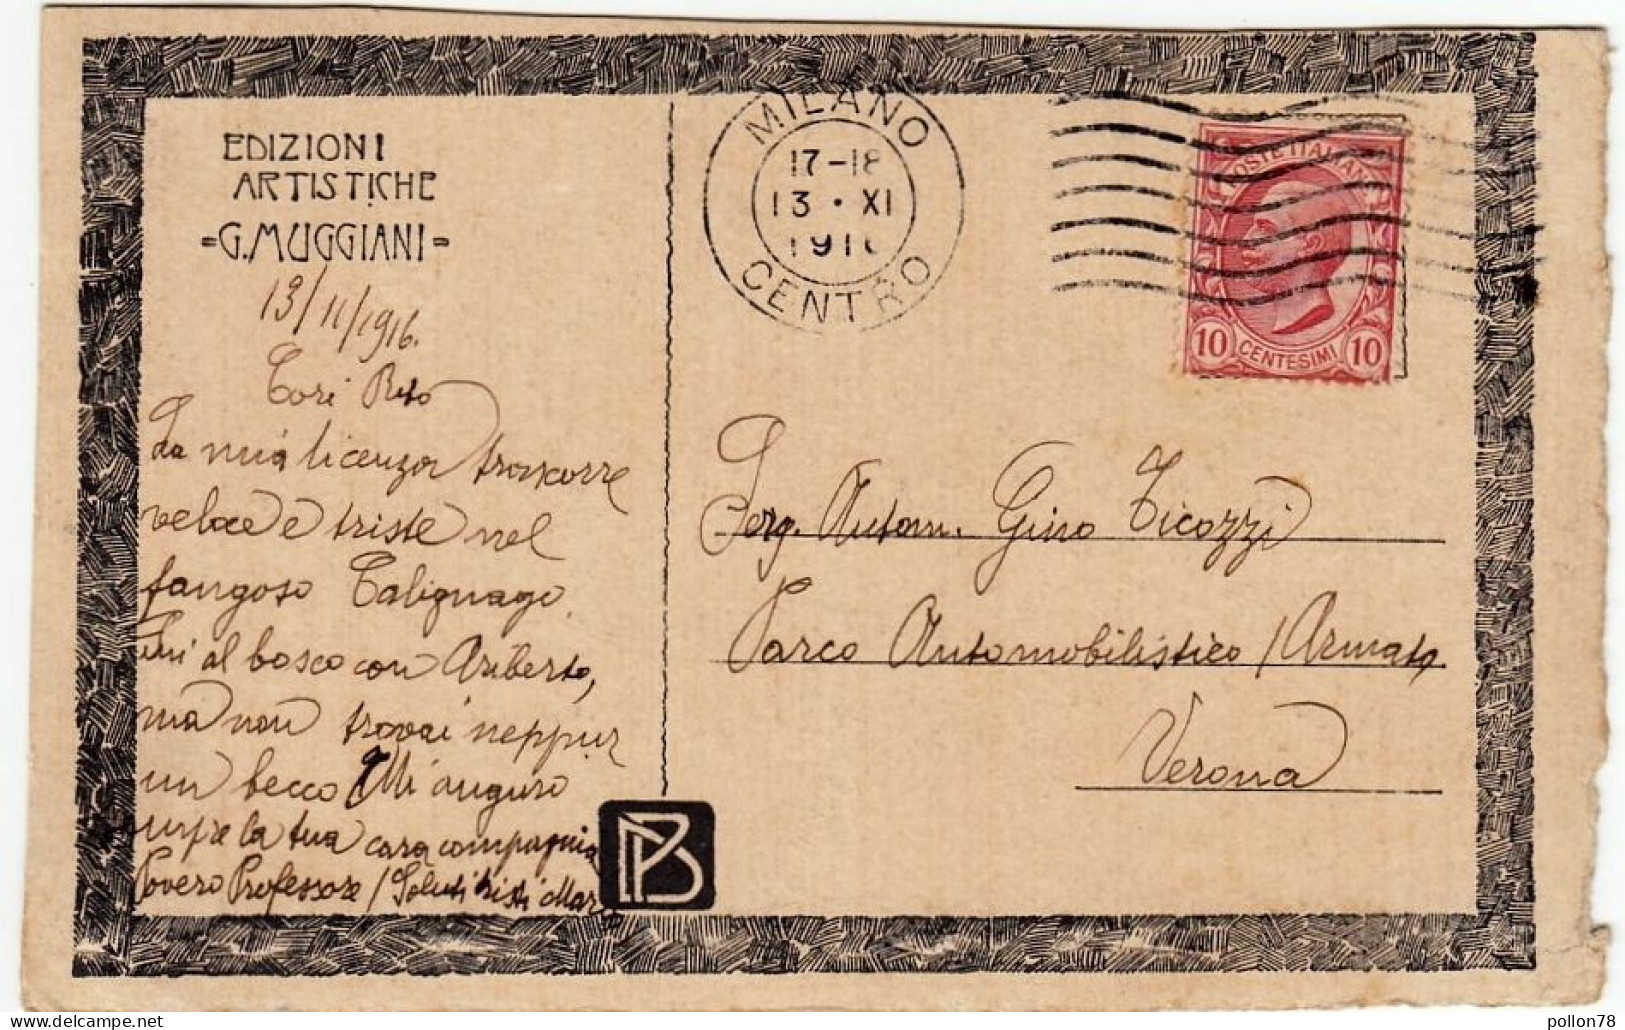 EDIZIONI
ARTISTICHE
=G.MUGGIANI=
13/11/1916.
La mia licenza trascorre
veloce e triste nel
fangoso Talignago.
al bosco con Ariberto,
ma non trovai neppur
un becco Mi auguro
la tua cara compagnia
Povero Professore / Saluti tristi Mar
MILANO
17-18
13·XI
191
CENTRO
POSTE ITALIANE
10 CENTESIMI 10
Serg. Autom. Gino Ticozzi
Parco Automobilistico 1ª Armata
Verona
PB
https://www.delcampe.net
pollon78